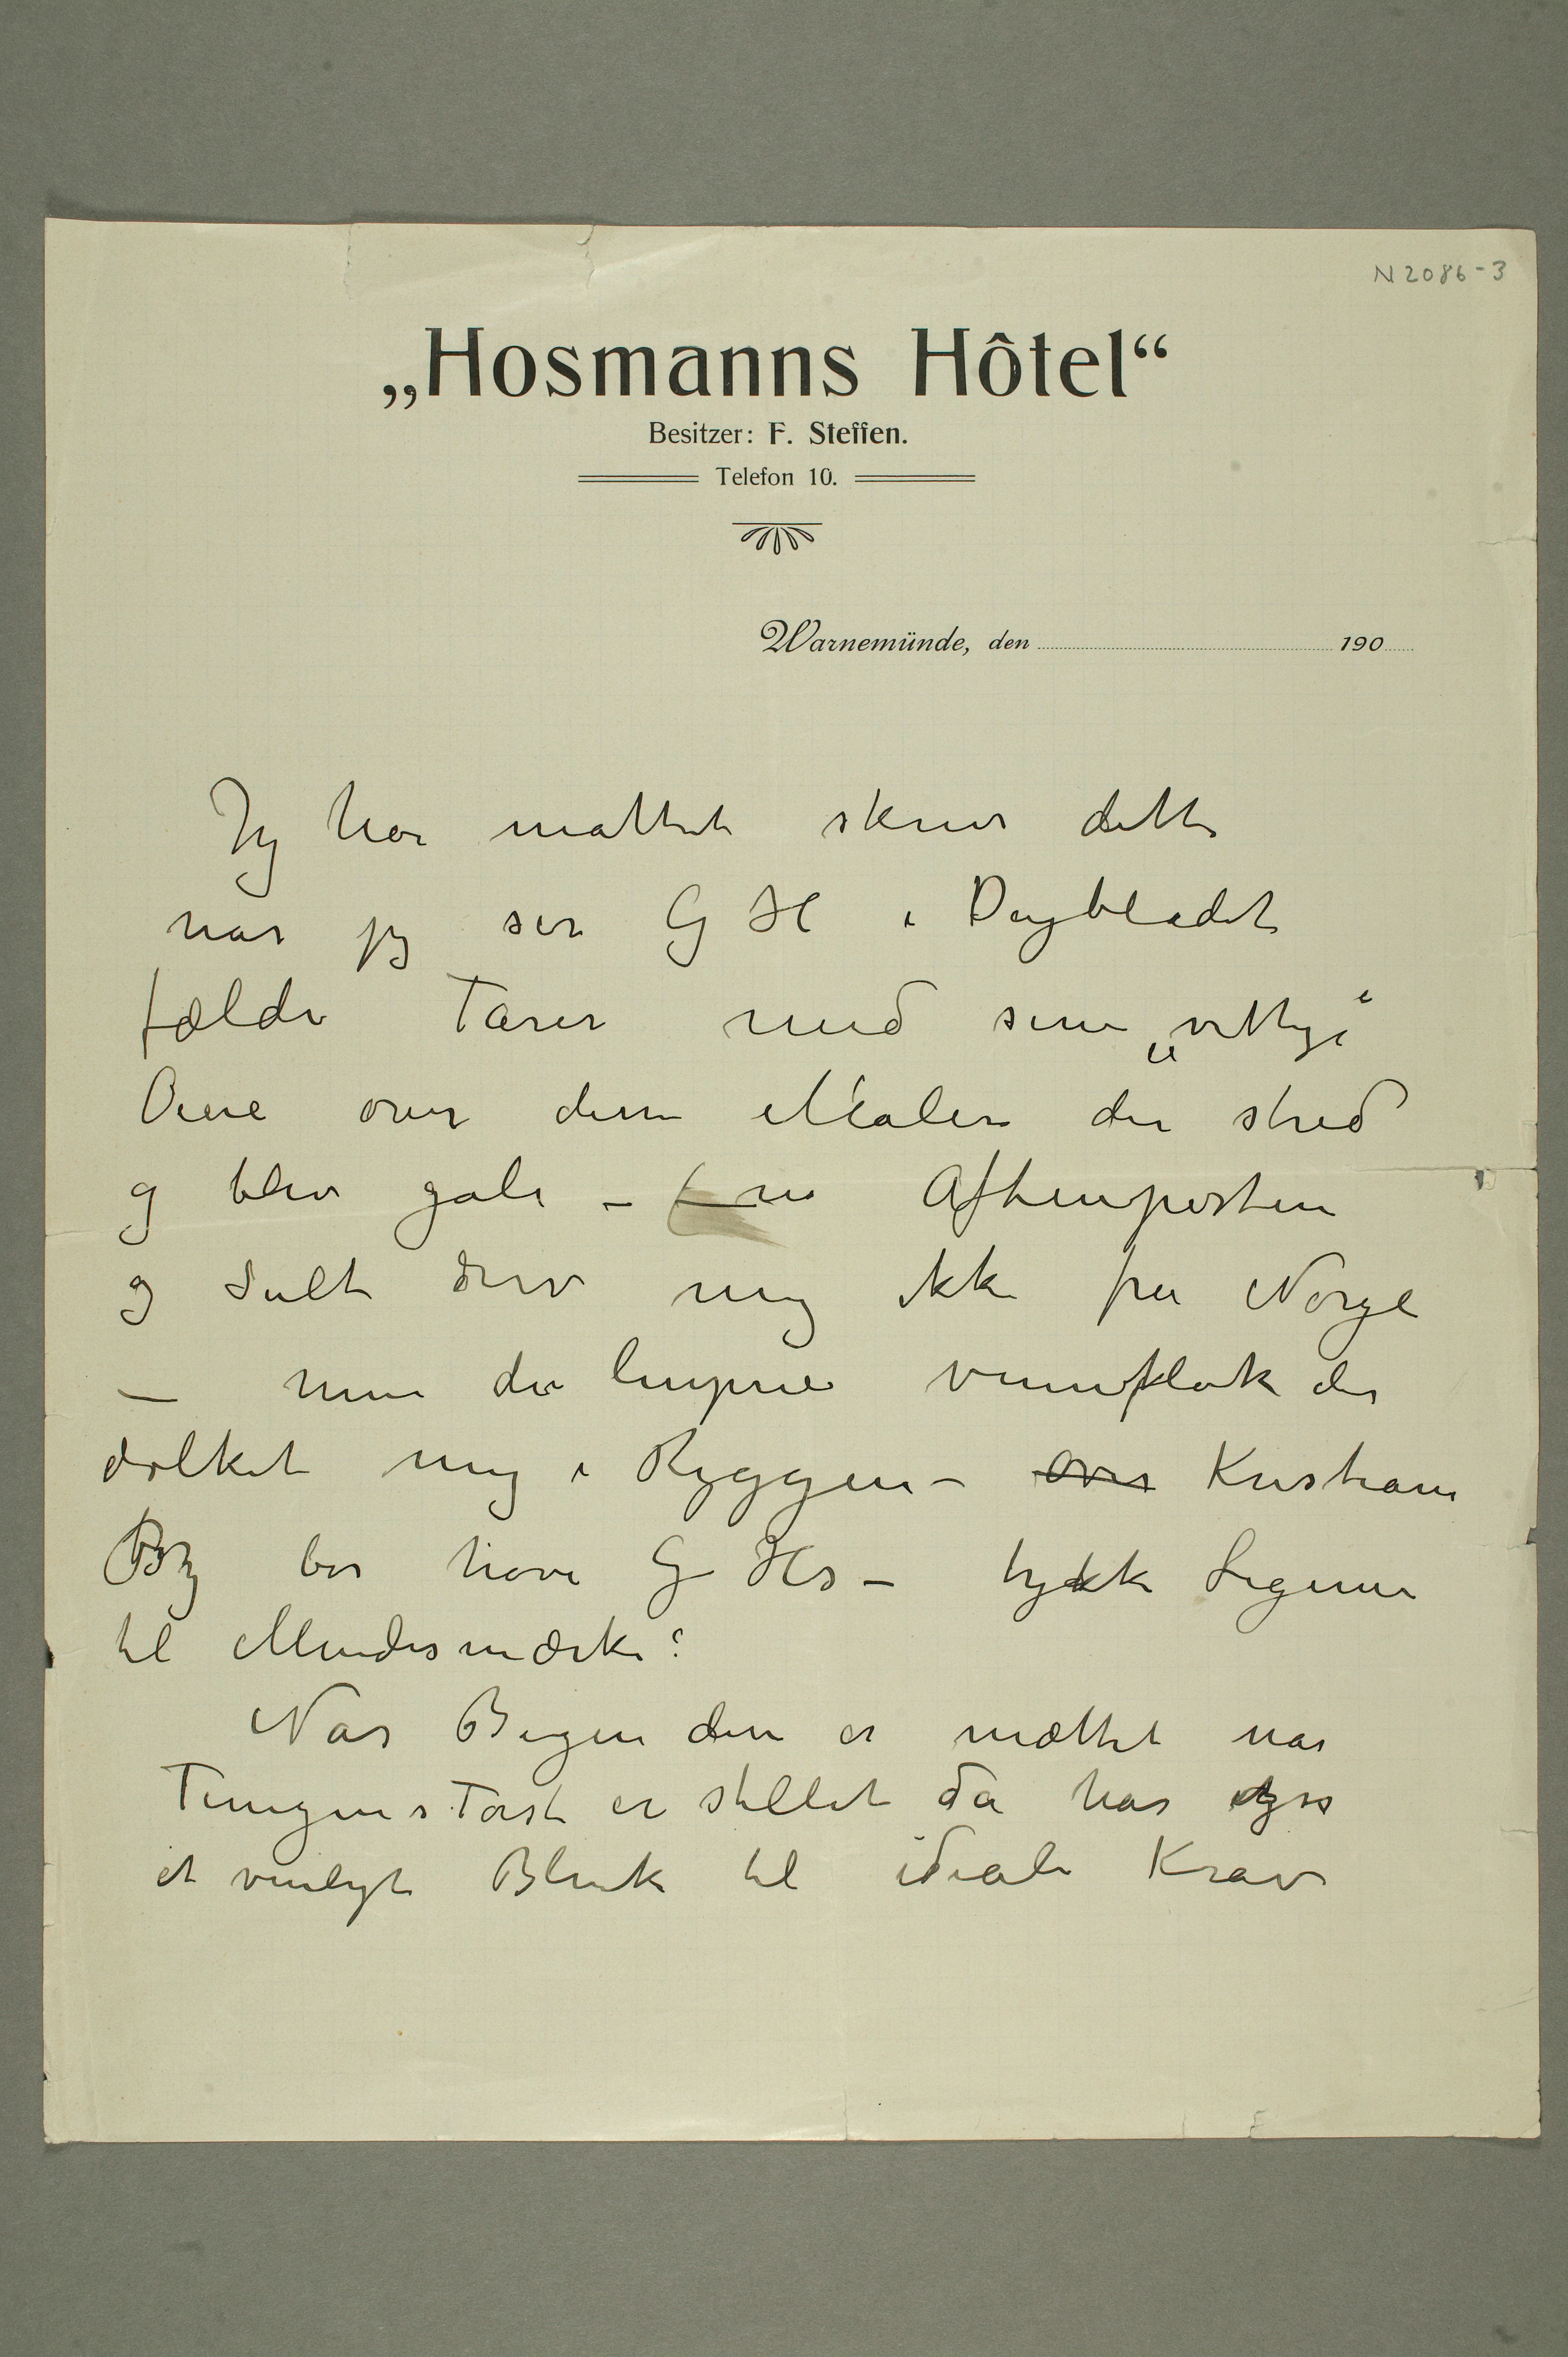 N 2086-3
„Hosmanns Hôtel“
Besitzer: F. Steffen.
Telefon 10.
Warnemünde, den 190
Jeg har måttet skrive dette
når jeg ser G H i Dagbladet
fælde Tårer med sine „vittige“
Øine over denne Maler der stred
og blev gale – Aftenposten
og Sult drev mig ikke fra Norge
– men der vennflok der
dolket mig i Ryggen – over Kristiania
By bør have G Hs – tykke Legeme
til Mindesmærke?
Når Bugen den er mættet når
Tungens Tørst er stillet da har
et venligt Blink til ideale Krav